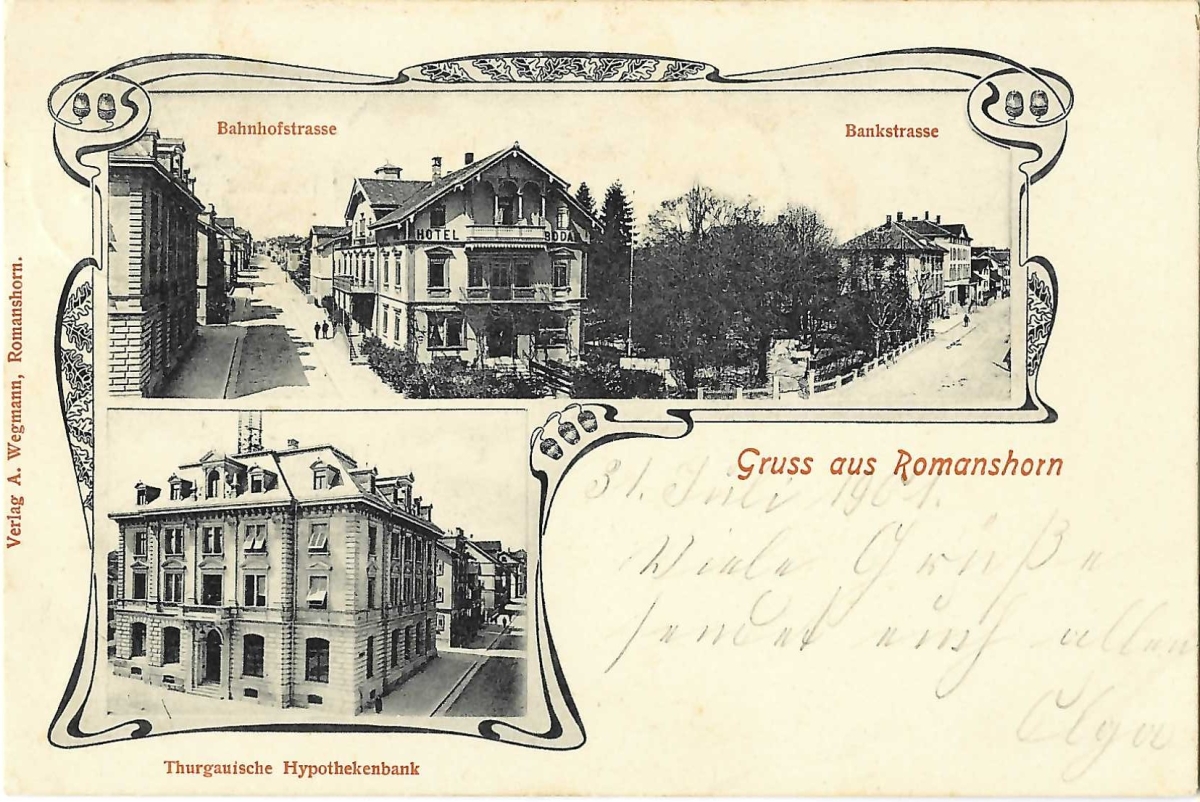 Bahnhofstrasse
Bankstrasse
HOTEL BODA
Verlag A. Wegmann, Romanshorn.
Gruss aus Romanshorn
31. Juli 1901.
Viele Grüße
sendet euch allen
Olga
Thurgauische Hypothekenbank